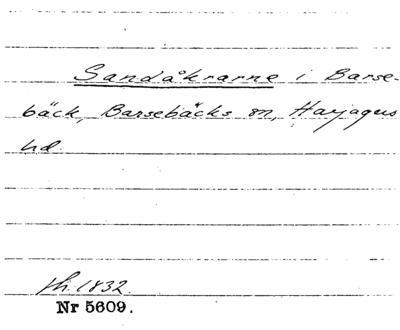 Sandåkrarne i Barse-
bäck, Barsebäcks sn, Harjagers
hd.
sk. 1832.
Nr 5609.